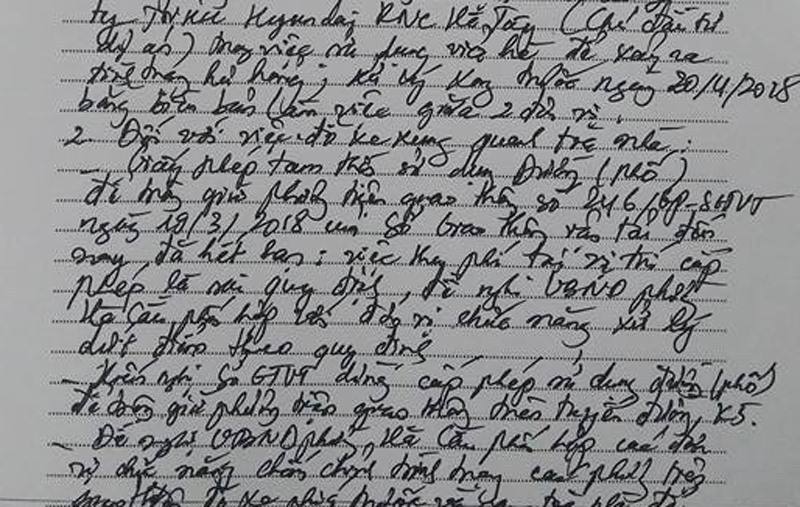 ty TNHH Hyundai RNC Hà Tây (Chủ đầu tư
dự án) trong việc sử dụng vỉa hè, để xảy ra
tình trạng hư hỏng; ký ngày 20/4/2018
bằng biên bản làm việc giữa 2 đơn vị.
2. Đối với việc đỗ xe xung quanh tòa nhà:
- Giấy phép tạm thời sử dụng đường (phố)
để trông giữ phương tiện giao thông số 246/GP-SGTVT
ngày 19/3/2018 của Sở Giao thông vận tải đến
nay đã hết hạn; việc thu phí tại vị trí cấp
phép là sai quy định, đề nghị UBND phường
Hà Cầu phối hợp với đơn vị chức năng xử lý
dứt điểm theo quy định
- Kiến nghị Sở GTVT dừng cấp phép sử dụng đường (phố)
để trông giữ phương tiện giao thông trên tuyến đường
- Đề nghị UBND phường Hà Cầu phối hợp các đơn
vị chức năng chấn chỉnh tình trạng các phương tiện
giao thông đỗ xe